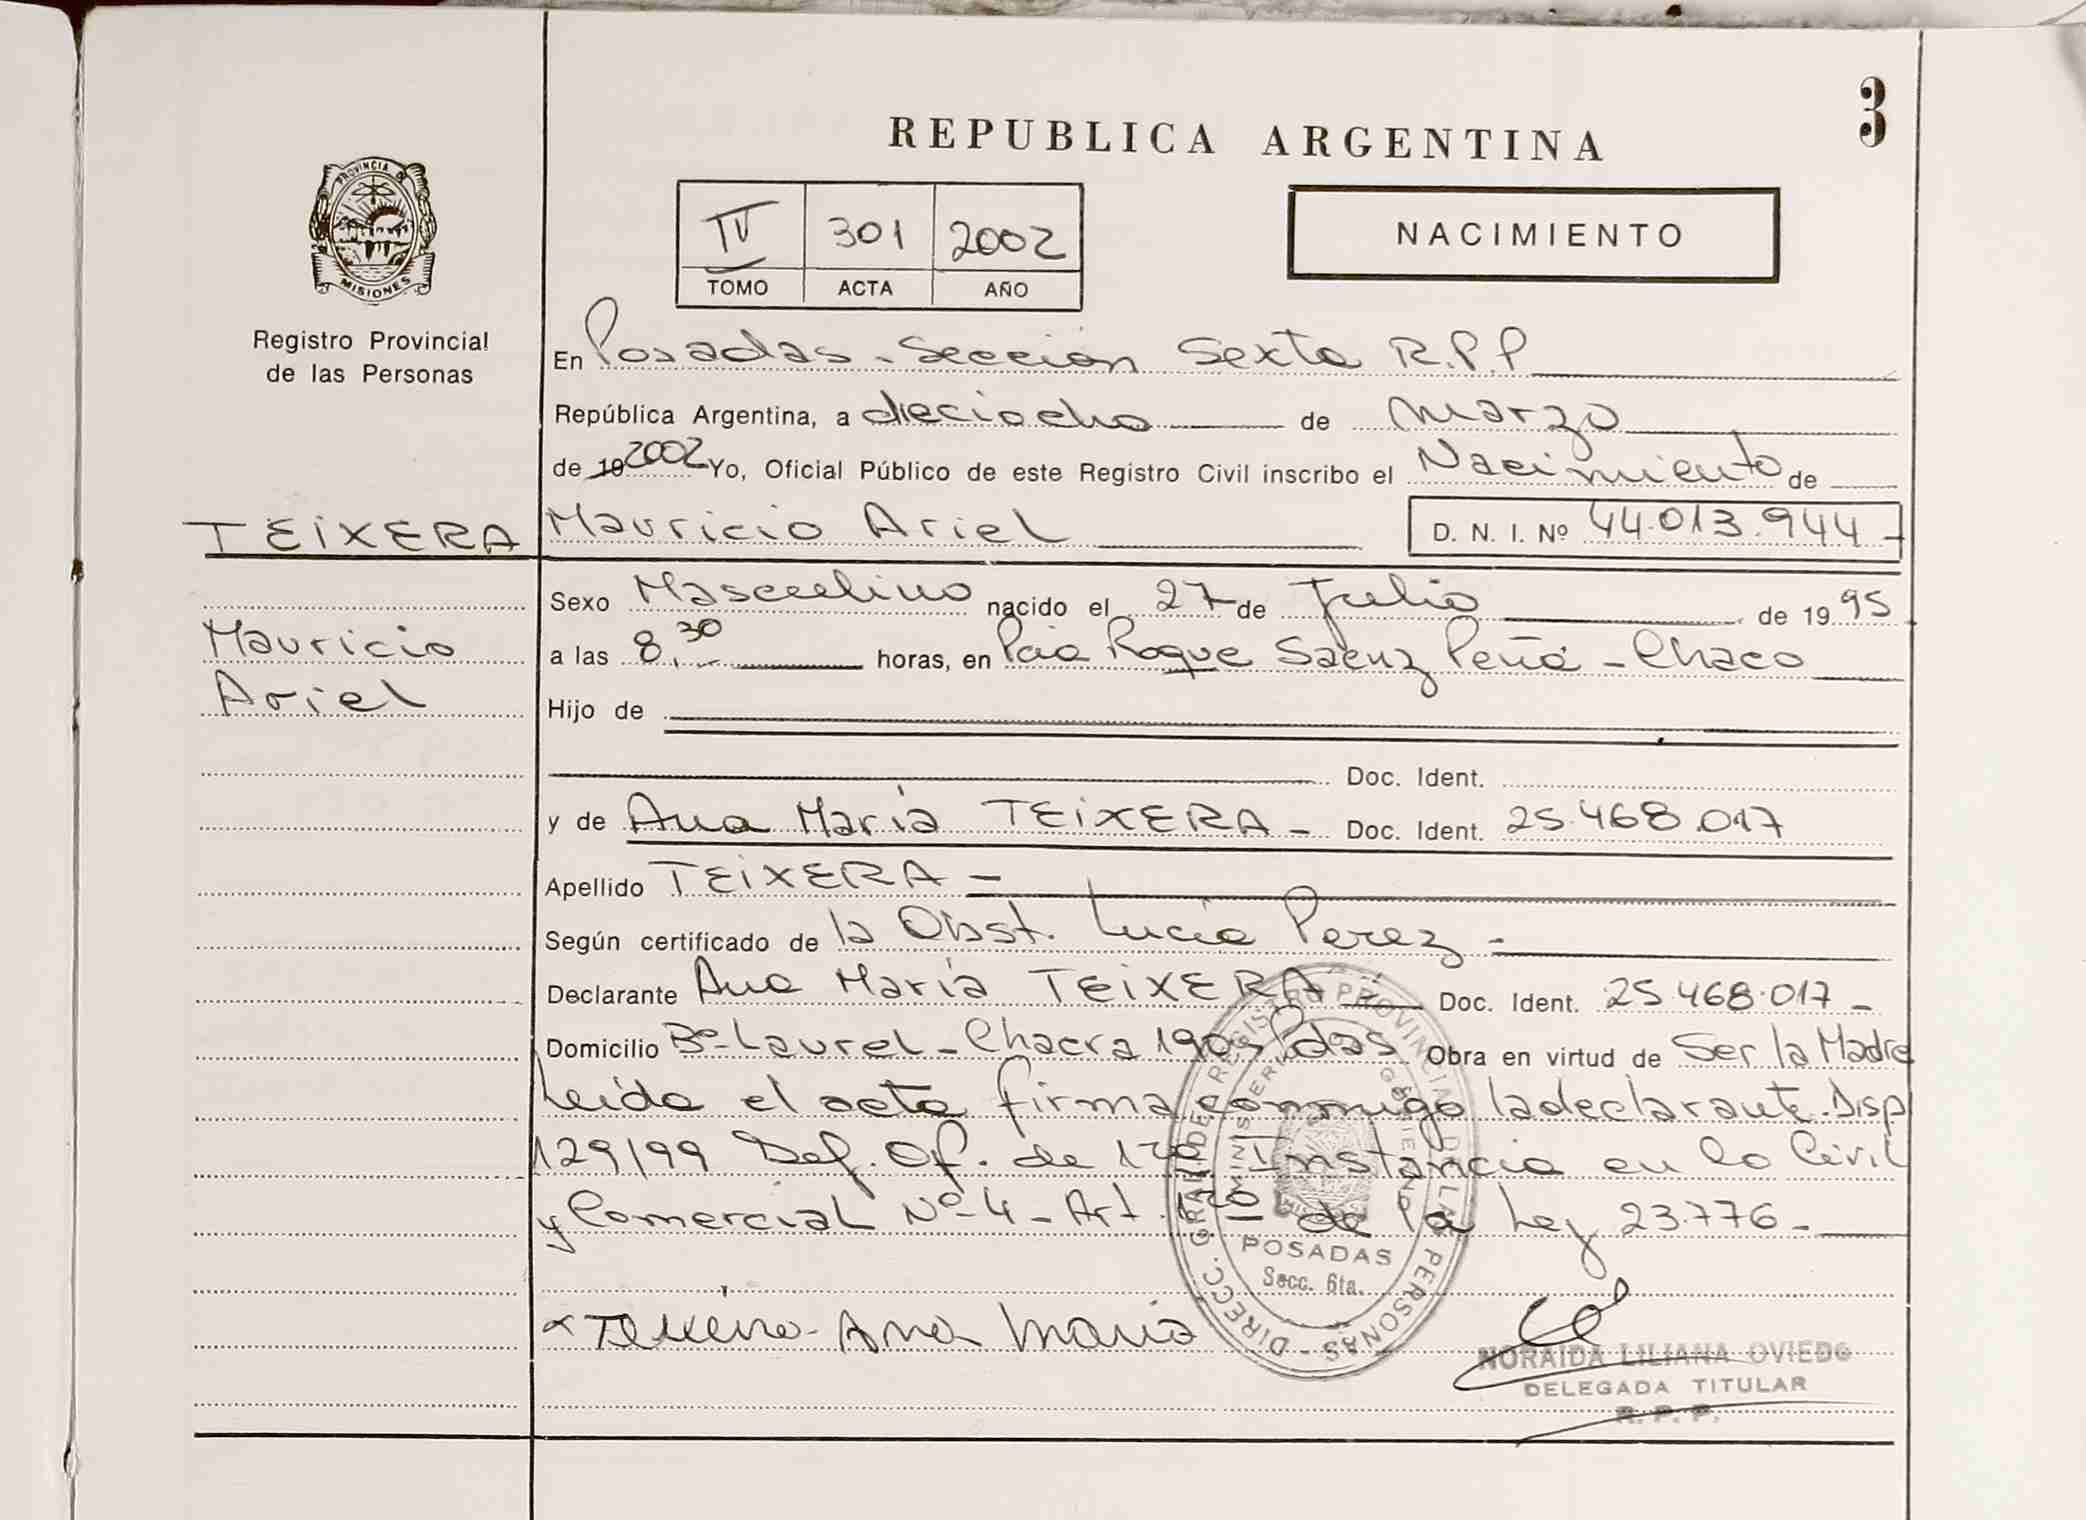 3
REPUBLICA ARGENTINA
PROVINCIA DE
MISIONES
Registro Provincial
de las Personas
IV 301 2002
TOMO ACTA AÑO
NACIMIENTO
En Posadas - Sección Sexta R.P.P
República Argentina, a dieciocho de marzo
de 19 2002 Yo, Oficial Público de este Registro Civil inscribo el Nacimiento de
TEIXERA Mauricio Ariel D. N. I. Nº 44.013.944-
Sexo Masculino nacido el 27 de Julio de 19 95
Mauricio
a las 8,30 horas, en Pcia Roque Saenz Peña - Chaco
Ariel
Hijo de
Doc. Ident.
y de Ana María TEIXERA - Doc. Ident. 25.468.017
Apellido TEIXERA -
Según certificado de la Obst. Lucia Perez -
Declarante Ana María TEIXERA - Doc. Ident. 25.468.017-
Domicilio Bº Laurel - Chacra 190 - Pdas Obra en virtud de Ser la Madre
Leida el acta firma conmigo la declarante. Disp
129/99 Def. Of. de 1ra Instancia en lo Civil
y Comercial Nº 4 - Art. 1ro de la Ley 23.776-
DIRECC. GRAL. DE REGISTRO PROVINCIAL DE LAS PERSONAS
MINISTERIO GOBIERNO
POSADAS
Secc. 6ta.
Ana Maria
NORAIDA LILIANA OVIEDO
DELEGADA TITULAR
R. P. P.